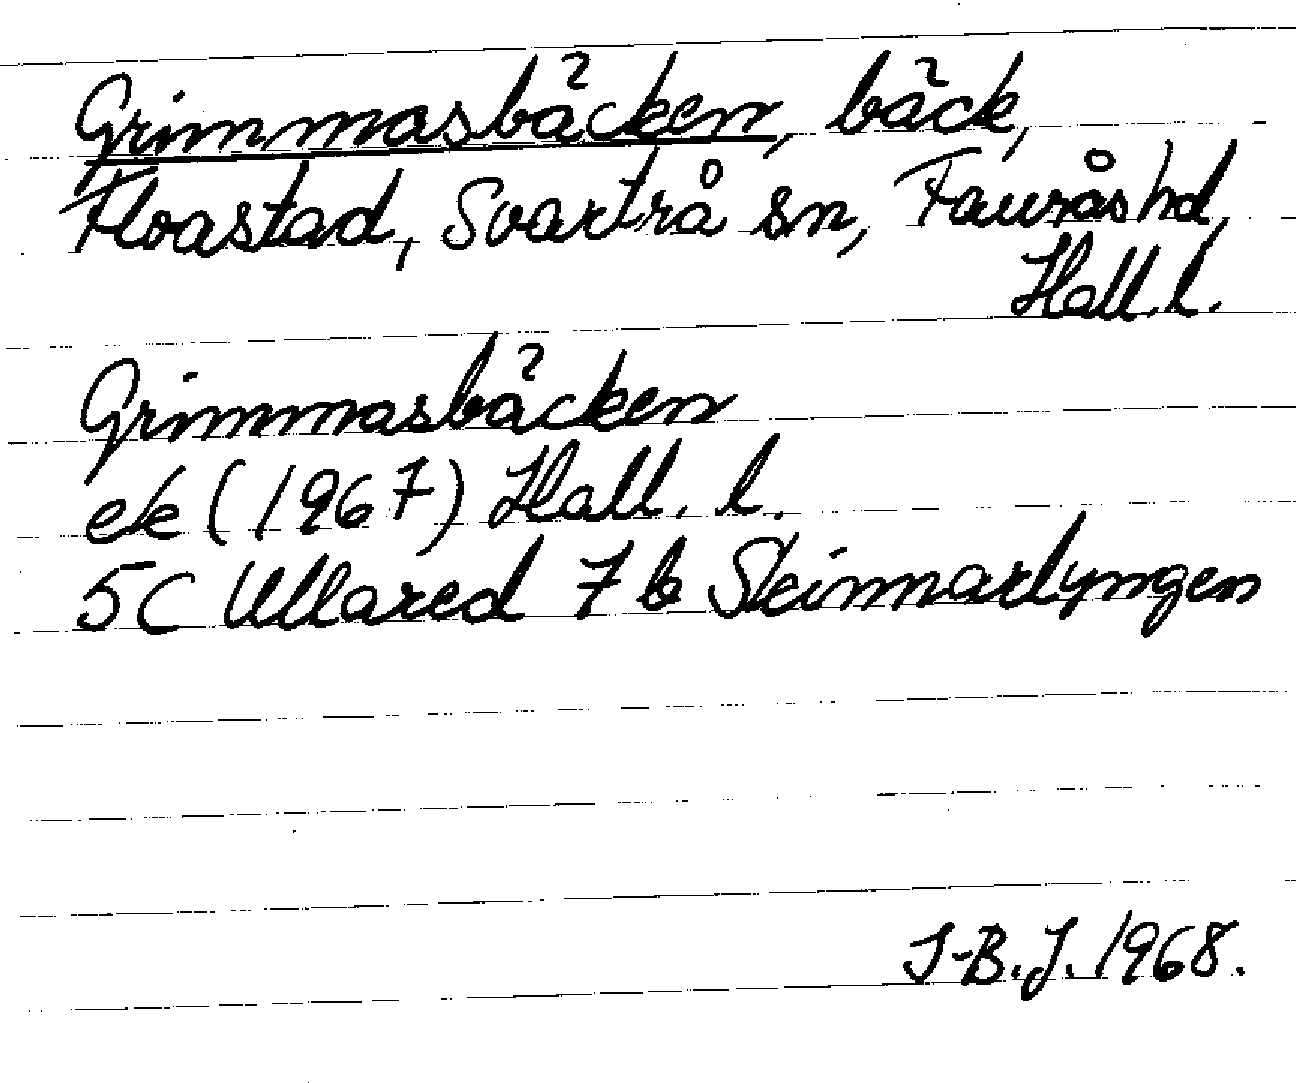 Grimmasbäcken, bäck,
Floastad, Svartrå sn, Fauråshd,
Hall.l.
Grimmasbäcken
ek (1967) Hall. l.
5C Ullared 7 b Skinnarlyngen
I-B.J. 1968.